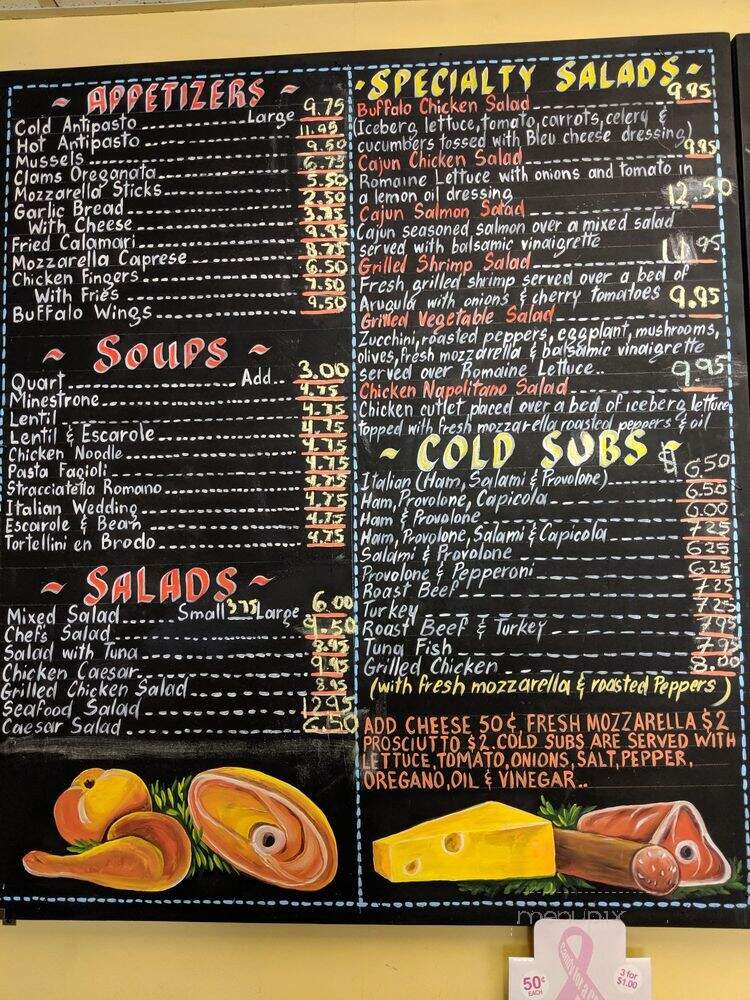 ~ APPETIZERS ~
Cold Antipasto Large 9.75
Hot Antipasto 11.95
Mussels 9.50
Clams Oreganata 6.75
Mozzarella Sticks 5.50
Garlic Bread 2.50
With Cheese 3.25
Fried Calamari 9.95
Mozzarella Caprese 8.75
Chicken Fingers 6.50
With Fries 7.50
Buffalo Wings 9.50
~ SOUPS ~
Quart Add.. 3.00
Minestrone 4.75
Lentil 4.75
Lentil & Escarole 4.75
Chicken Noodle 4.75
Pasta Fagioli 4.75
Stracciatella Romano 4.75
Italian Wedding 4.75
Escarole & Bean 4.75
Tortellini en Brodo 4.75
~ SALADS ~
Mixed Salad Small 3.75 Large 6.00
Chefs Salad 9.50
Salad with Tuna 8.95
Chicken Caesar 9.95
Grilled Chicken Salad 8.95
Seafood Salad 12.95
Caesar Salad 6.50
-SPECIALTY SALADS-
Buffalo Chicken Salad 9.95
(Iceberg lettuce, tomato, carrots, celery &
cucumbers tossed with Bleu cheese dressing)
Cajun Chicken Salad 9.95
Romaine Lettuce with onions and tomato in
a lemon oil dressing
Cajun Salmon Salad 12.50
Cajun seasoned salmon over a mixed salad
served with balsamic vinaigrette
Grilled Shrimp Salad 11.95
Fresh grilled shrimp served over a bed of
Arugula with onions & cherry tomatoes
Grilled Vegetable Salad 9.95
Zucchini, roasted peppers, eggplant, mushrooms,
olives, fresh mozzarella & balsamic vinaigrette
served over Romaine Lettuce..
Chicken Napolitano Salad 9.95
Chicken cutlet placed over a bed of iceberg lettuce
topped with fresh mozzarella roasted peppers & oil
- COLD SUBS -
Italian (Ham, Salami & Provolone) $6.50
Ham, Provolone, Capicola 6.50
Ham & Provolone 6.00
Ham, Provolone, Salami & Capicola 7.25
Salami & Provolone 6.25
Provolone & Pepperoni 6.25
Roast Beef 7.25
Turkey 7.25
Roast Beef & Turkey 7.95
Tuna Fish 7.95
Grilled Chicken 8.00
(with fresh mozzarella & roasted Peppers)
ADD CHEESE 50¢ FRESH MOZZARELLA $2
PROSCIUTTO $2. COLD SUBS ARE SERVED WITH
LETTUCE, TOMATO, ONIONS, SALT, PEPPER,
OREGANO, OIL & VINEGAR..
menupix
50¢
EACH
3 for
$1.00